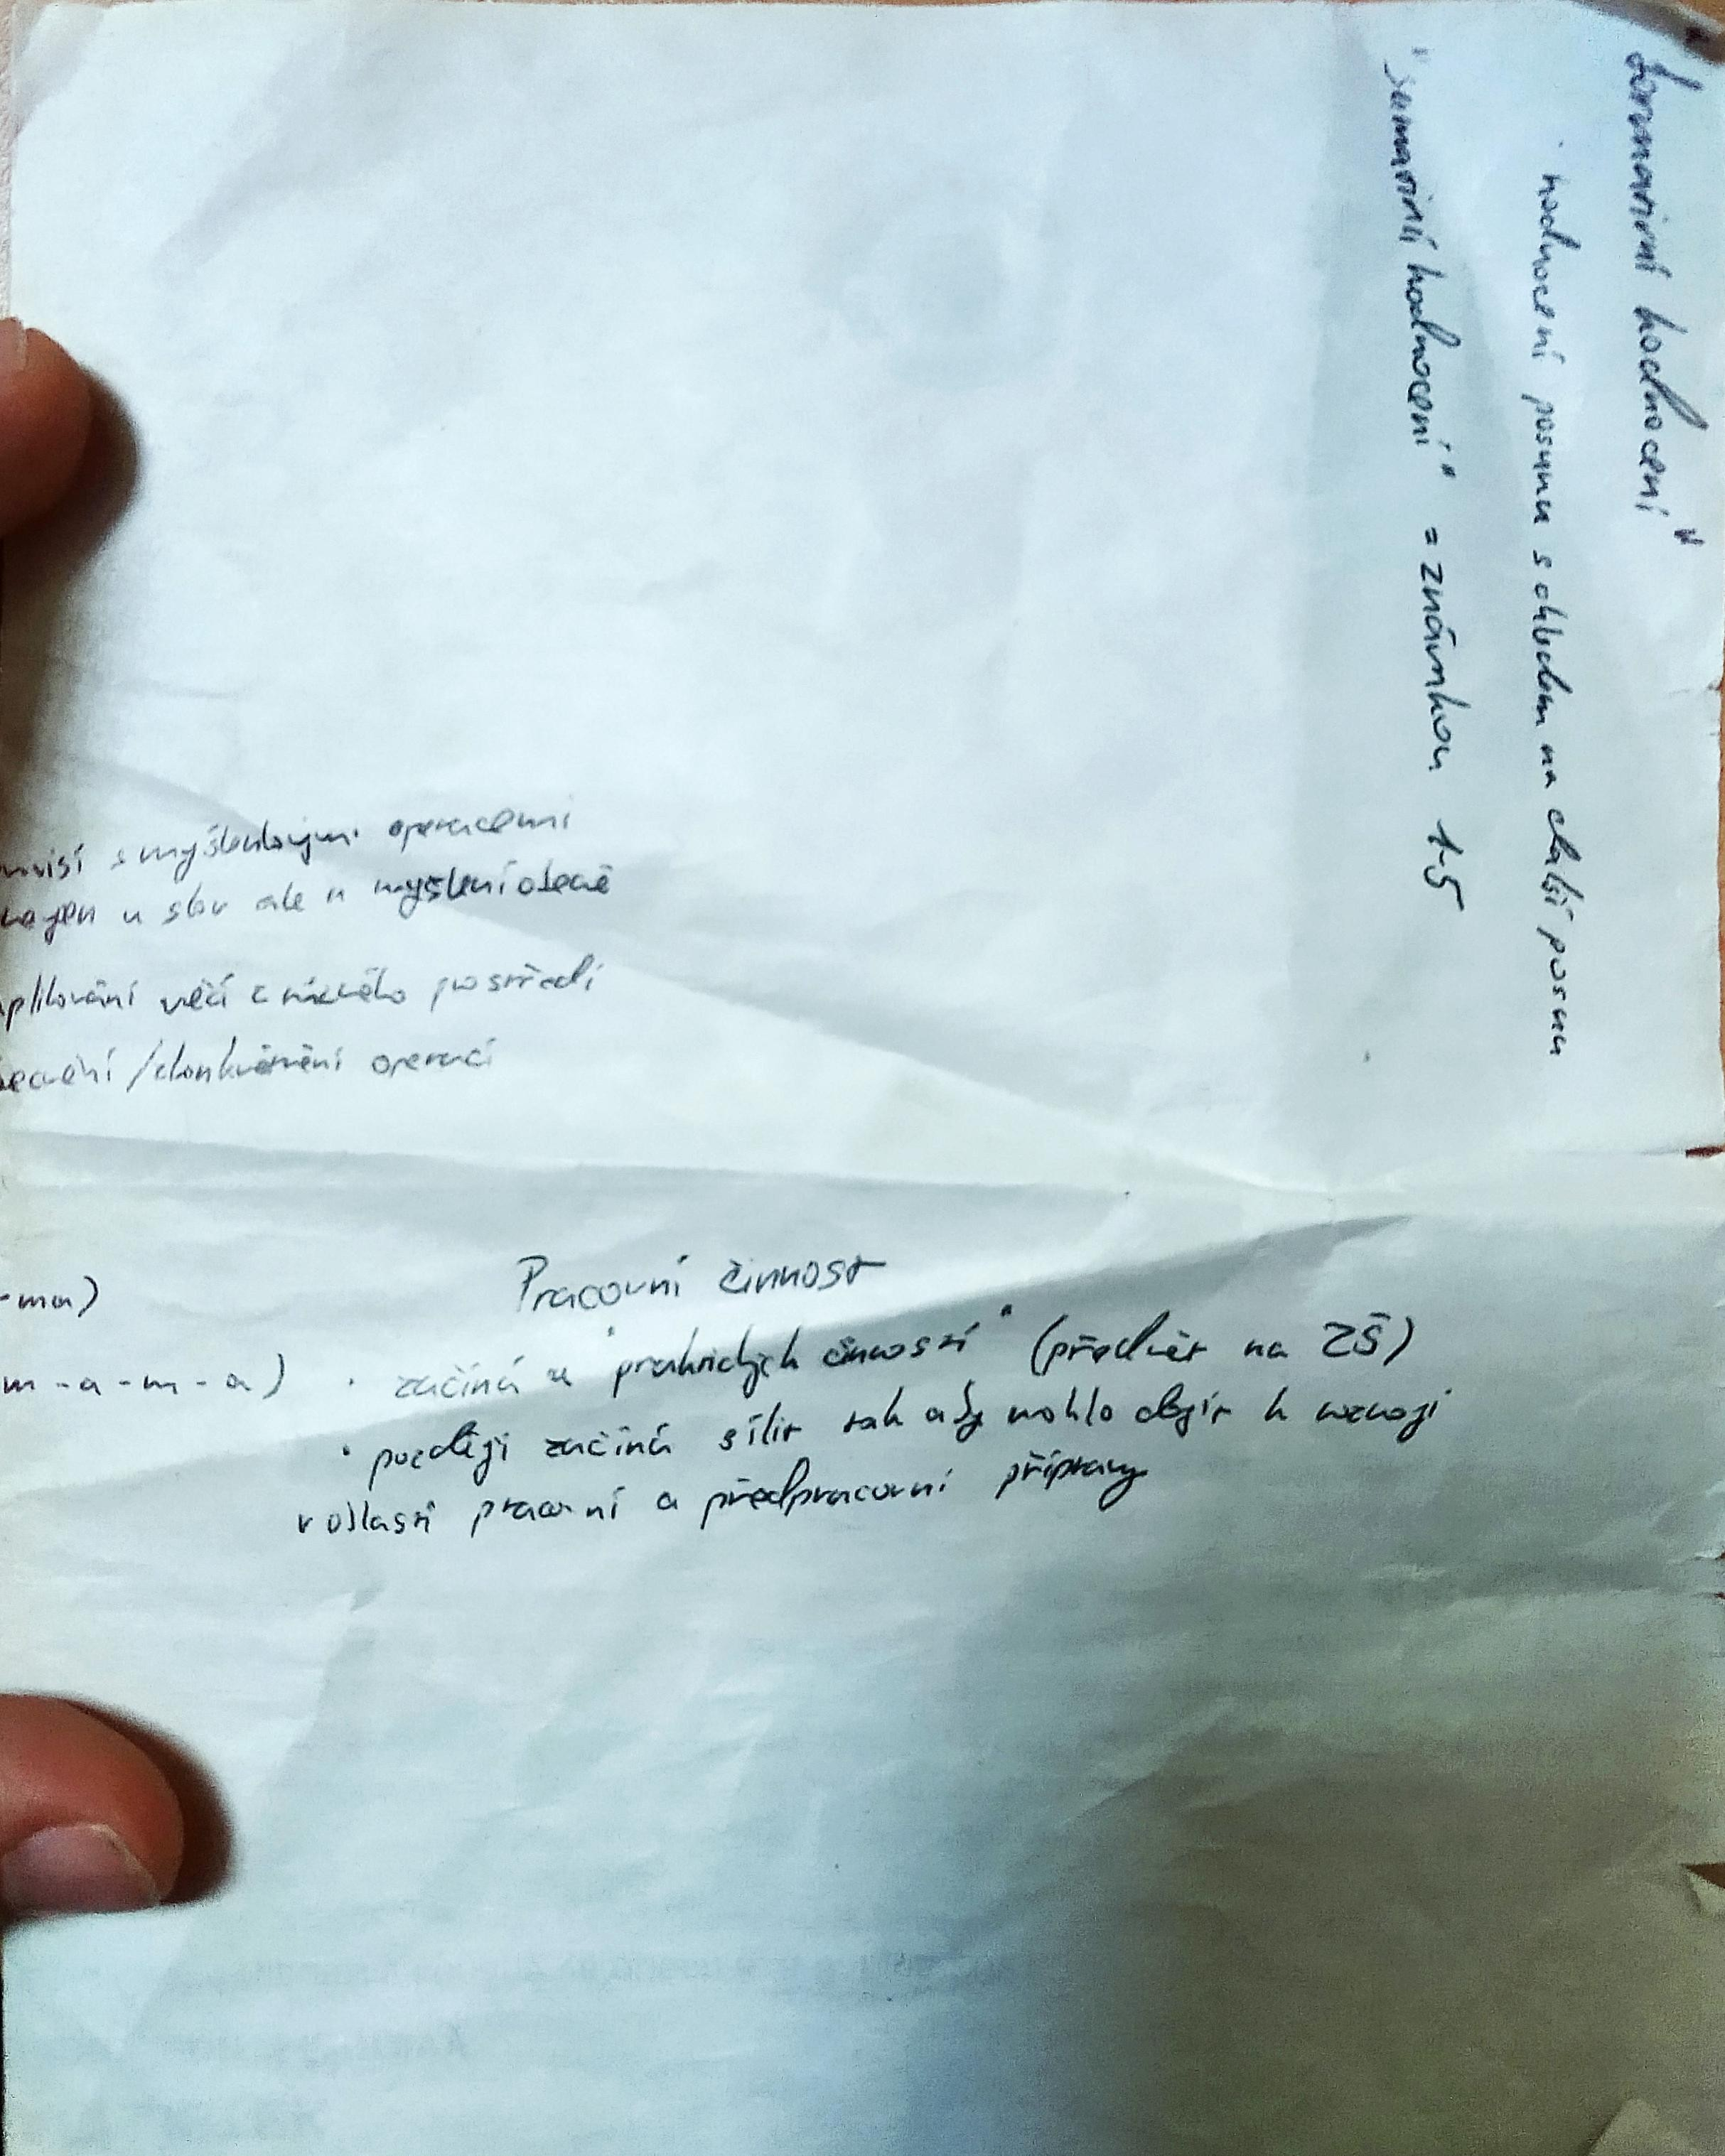 "formativní hodnocení"
· hodnocení posunu s ohledem na další posun
"sumativní hodnocení" = známkou 1-5
s myšlenkovými operacemi
u slov ale u myšlení obecně
věcí z nového prostředí
/ operací
-ma)
m-a-m-a)
Pracovní činnost
· začíná u "praktických činností" (předmět na ZŠ)
· později začíná sílit tak aby mohlo dojít k rozvoji
v oblasti pracovní a předpracovní přípravy